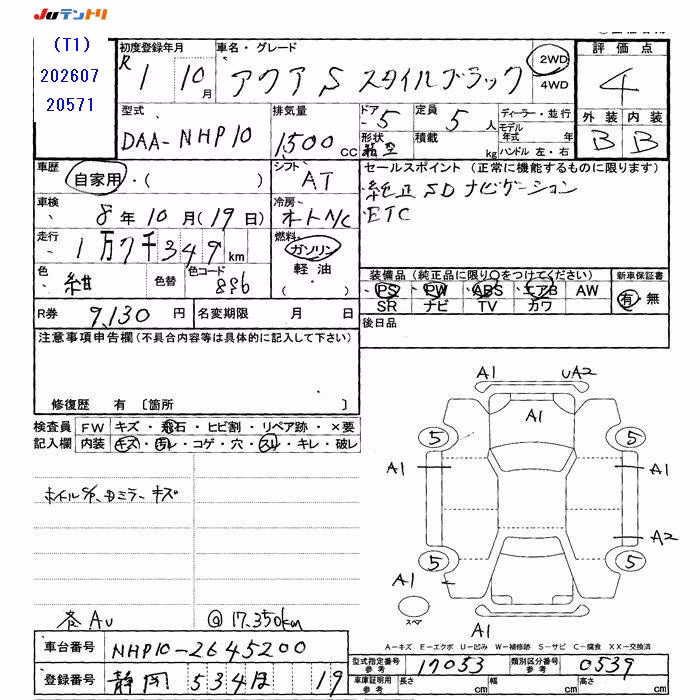 JUテントリ
(T1)
202607
20571
初度登録年月
R 1 10月
車名・グレード
アクア S スタイルブラック
2WD
4WD
評価点
4
型式
DAA-NHP10
排気量
1,500 cc
ドア
5
形状
箱型
定員
5人
積載
kg
ディーラー・並行
モデル年式 年
ハンドル 左・右
外装 内装
B B
車歴
自家用・( )
シフト
AT
セールスポイント (正常に機能するものに限ります)
純正SDナビゲーション
ETC
車検
8年10月(19日)
冷房
オートA/C
走行
1万7千349km
燃料
ガソリン
軽油
・( )
色
紺
色替
色コード
8S6
装備品 (純正品に限り○をつけてください)
PS PW ABS エアB AW
SR ナビ TV カワ
新車保証書
有 無
R券
9,130円
名変期限 月 日
後日品
注意事項申告欄(不具合内容等は具体的に記入して下さい)
修復歴 有 〔箇所 〕
検査員記入欄
FW キズ・飛石・ヒビ割・リペア跡・×要
内装 キズ・汚レ・コゲ・穴・スレ・キレ・破レ
キズ
A1 UA2
A1
5 5
A1 A1
A2
5 5
A1
スペア
A1
@ 17,350km
A-キズ E-エクボ U-凹み W-補修跡 S-サビ C-腐食 XX-交換済
車台番号
NHP10-2645200
登録番号
静岡 534ほ 19
型式指定番号
参考
17053
類別区分番号
参考
0539
車庫証明用
参考
長さ cm
幅 cm
高さ cm